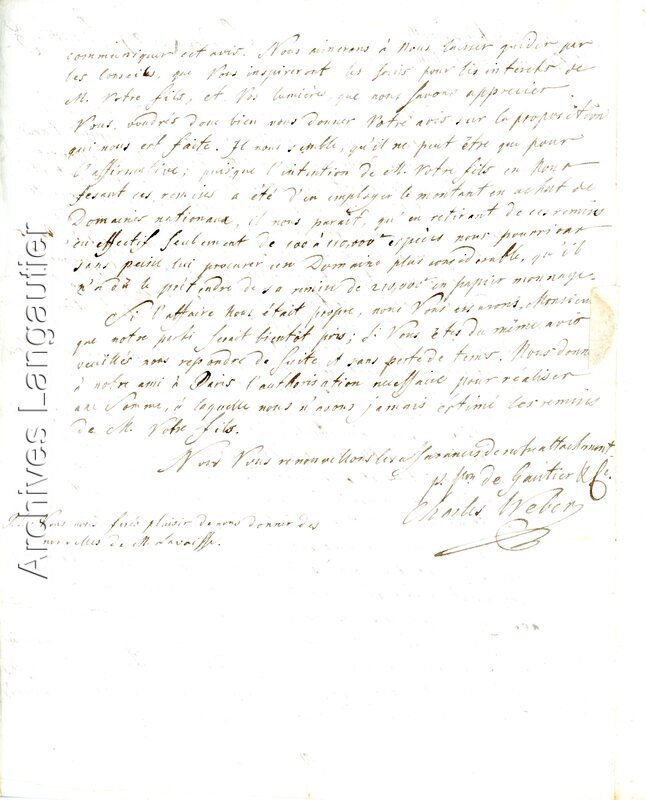 communiquer cet avis. Nous aimerons à nous laisser guider par
les conseils, que vous inspireront les soins pour les interets de
M. votre fils, et vos lumières, que nous savons apprecier
Vous voudrés donc bien nous donner votre avis sur la proposition
qui nous est faite. Il nous semble, qu'il ne peut être que pour
l'affirmative; puisque l'intention de M. votre fils en nous
fesant ces remises a été d'en employer le montant en achat de
Domaines nationaux, il nous parait, qu'en retirant de ces remises
en effectif seulement de 100 à 110,000# espèces nous pourrions
sans peine lui procurer un Domaine plus considerable, qu'il
n'a dû le prétendre de sa remise de 210,000# en papier monnaye.
Si l'affaire nous était propre, nous vous assurons, Monsieur
que notre parti serait bientôt pris; si vous êtes du même avis
veuillés nous repondre de suite et sans perte de tems. Nous donn
à notre ami à Paris l'authorisation necessaire pour réaliser
une somme, à laquelle nous n'avons jamais estimé les remises
de M. votre fils.
Nous vous renouvellons les assurances de notre attachement
de Gautier & Ce.
Charles Weber
Vous nous ferés plaisir de nous donner des
nouvelles de M. Lavaisse.
Archives Langautier